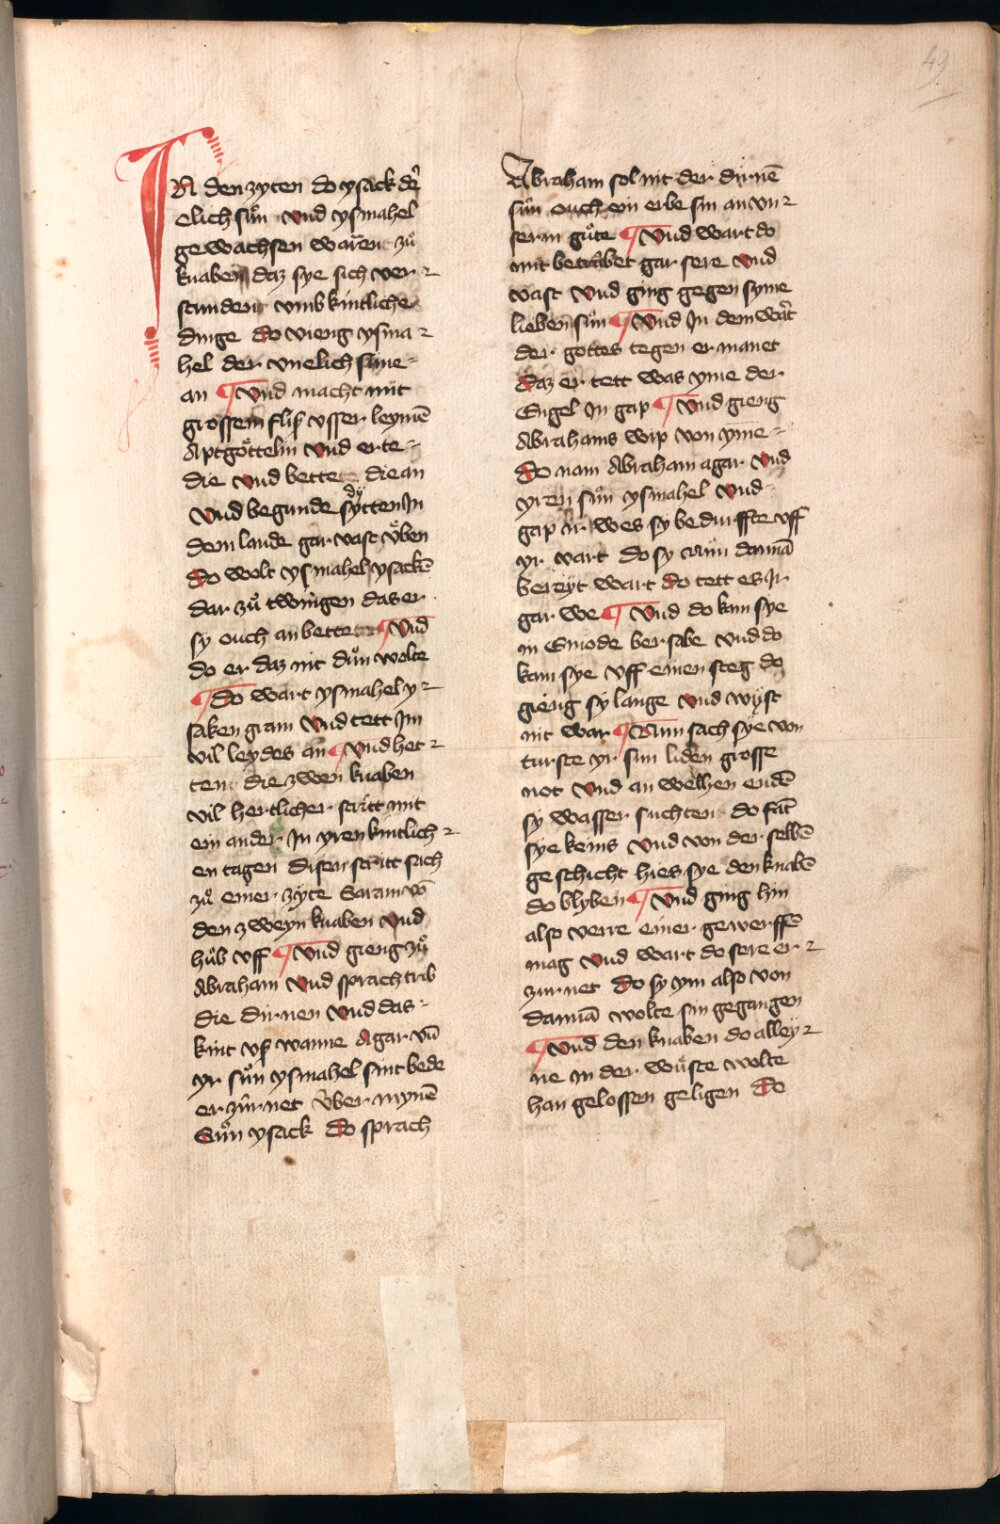 49
IN den zyten do ysack der
elich sůn vnd ysmahel
gewachsen waren zů
knaben daz sye sich ver-
stunden vmb kintliche
dinge do vieng ysma-
hel der vnelich sune
an ¶ Vnd macht mit
grossem fliß vsser leymē
Aptgöttelin vnd erte-
die vnd bette die an
vnd begunde dy sytten In
dem lande gar vast vͤben
do wolt ysmahel ysackē
dar zů twingen das er
sy ouch an bette ¶ Vnd
do er daz nit důn wolte
¶ do wart ysmahel y-
saken gram vnd tett Im
vil leydes an ¶ vnd het-
ten die zwen knaben
vil hertlicher stritt mit
ein ander In yren kintlich-
en tagen disen stritt sach
zů einer zyte Saram vō
den zweyn knaben vnd
hůb vff ¶ Vnd gieng zů
Abraham vnd sprach trib
die dirnen vnd das
kint vß wanne Agar vn̄
yr sůn ysmahel sint bede
erzürnet vber mynē
Sůn ysack do sprach
Abraham sol nit der dirnē
sůn ouch ein erbe sin an vn-
serm gůte ¶ Vnd wart do
mit betrübet gar sere vnd
vast vnd ging gegen syme
lieben sůn ¶ Vnd In dem wart
der gottes tegen er manet
daz er tett was yme der
Engel In gap ¶ Vnd gieng
Abrahams wip von yme
do nam Abraham agar vnd
yren sůn ysmahel vnd
gap ir wes sy bedurffte vff
yr vart do sy nun dannā
bereyt wart do tett es Ir
gar we ¶ Vnd do kam sye
in Einode bersabe vnd do
kam sye vff einen steg do
gieng sy lange vnd wyst
nit war ¶ Nun sach sye von
turste yr sun liden grosse
not vnd an welhen endē
sy wasser suchten do fāt
sye keins vnd von der selbē
geschicht hies sye den knabē
do blyben ¶ Vnd ging hin
also verre einer gewerffē
mag vnd wart do sere er-
zurnet do sy ym also von
dannā wolte sin gegangen
¶ Vnd den knaben do alley-
ne in der wůste wolte
han gelossen geligen do